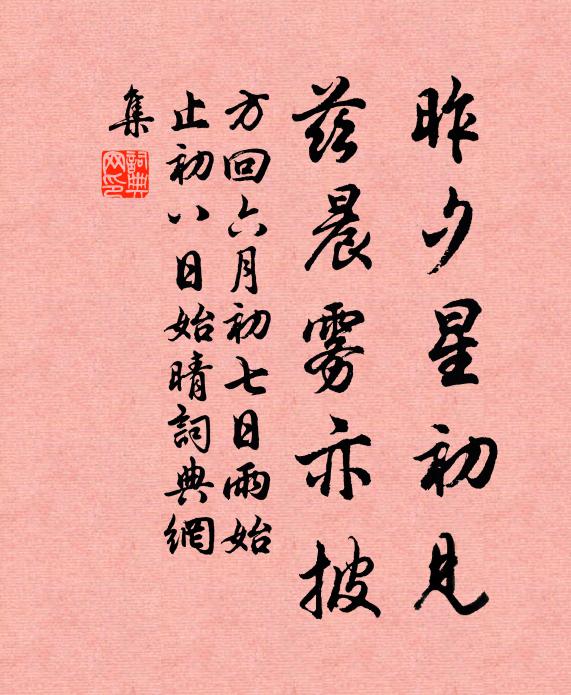 昨夕星初見
茲晨雾亦披
方回六月初七日雨始
止初八日始晴詞典網
集
詞典
网印